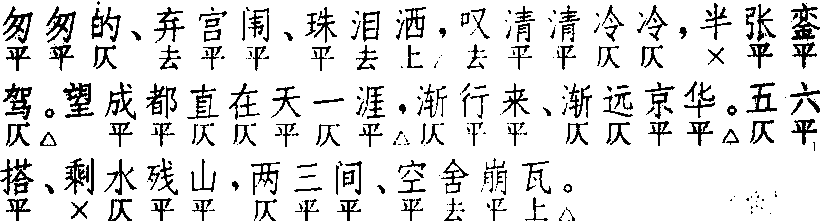 匆匆的、弃宫闱、珠泪洒,叹清清冷冷,半张銮
平平仄 去平平 平去上 去平平仄仄 ×平平
驾。望成都直在天一涯,渐行来、渐远京华。五六
仄△ 平平仄仄平仄平△仄平平 仄仄平平△仄平
搭、剩水残山,两三间、空舍崩瓦。
平 ×仄平平 仄平平 平去平上△